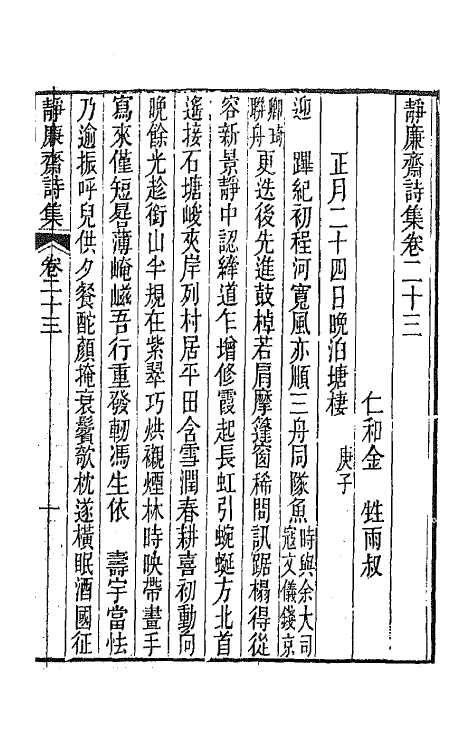 靜廉齋詩集卷二十三
仁和金　甡雨叔
正月二十四日晚泊塘棲　庚子
迎　蹕紀初程河寬風亦順三舟同隊魚時與余大司寇文儀錢京
卿琦聯舟更迭後先進鼓棹若肩摩篷窗稀問訊踞榻得從
容新景靜中認縴道乍增修霞起長虹引蜿蜒方北首
遙接石塘峻夾岸列村居平田含雪潤春耕喜初動向
晚餘光趁銜山半規在紫翠巧烘襯煙林時映帶畫手
寫來僅短晷薄崦嵫吾行重發軔馮生依　壽宇當怯
乃逾振呼兒供夕餐酡顏掩衰鬢欹枕遂橫眠酒國征
靜廉齋詩集　卷二十三　一